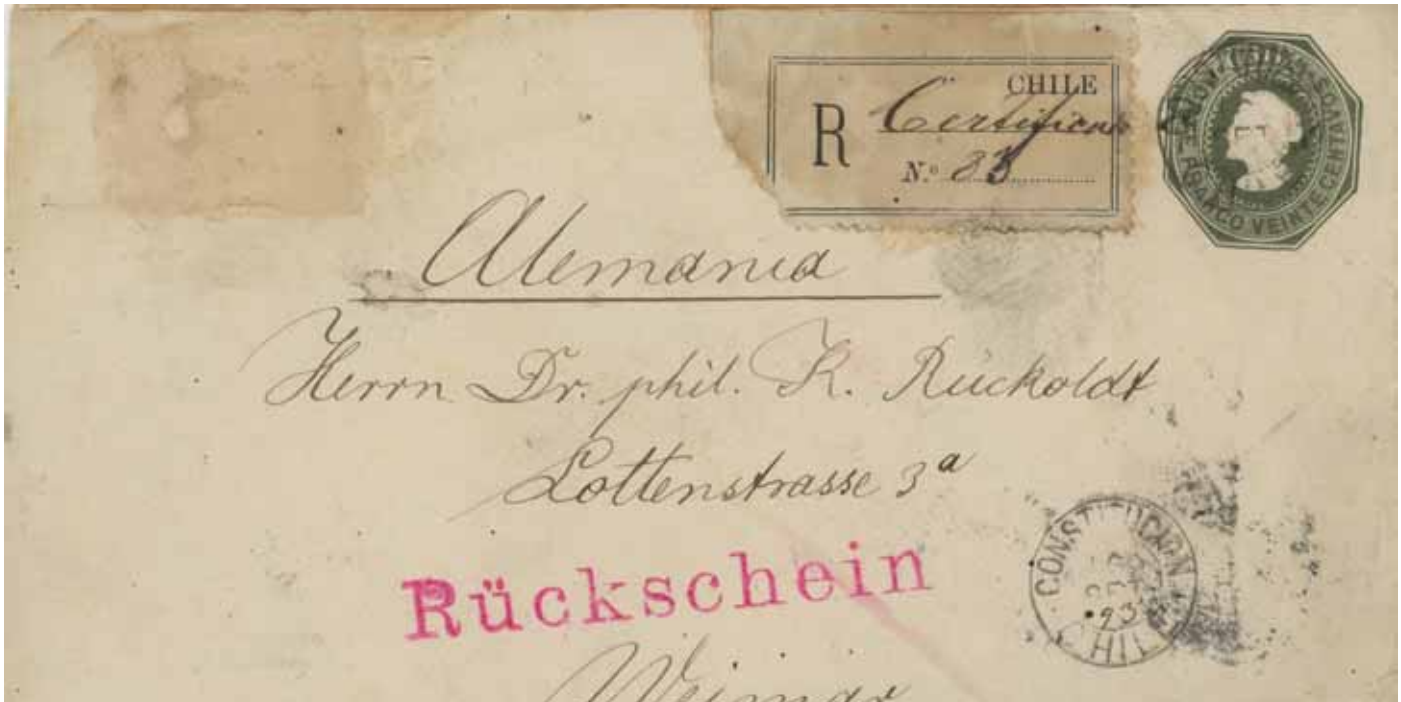 CHILE
R Certificado
N.º 33
VEINTE CENTAVOS
Alemania
Herrn Dr. phil. K. Rückoldt
Lottenstrasse 3ª
Rückschein
CONSTITUCION
93
CHILE
Weimar